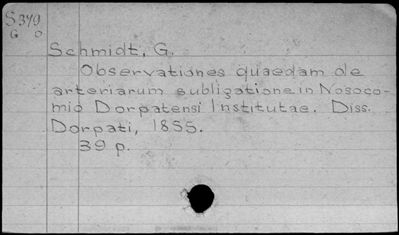 S379
G O
Schmidt, G.
Observationes quaedam de
arteriarum subligatione in Nosoco-
mio Dorpatensi Institutae. Diss.
Dorpati, 1855.
39 p.